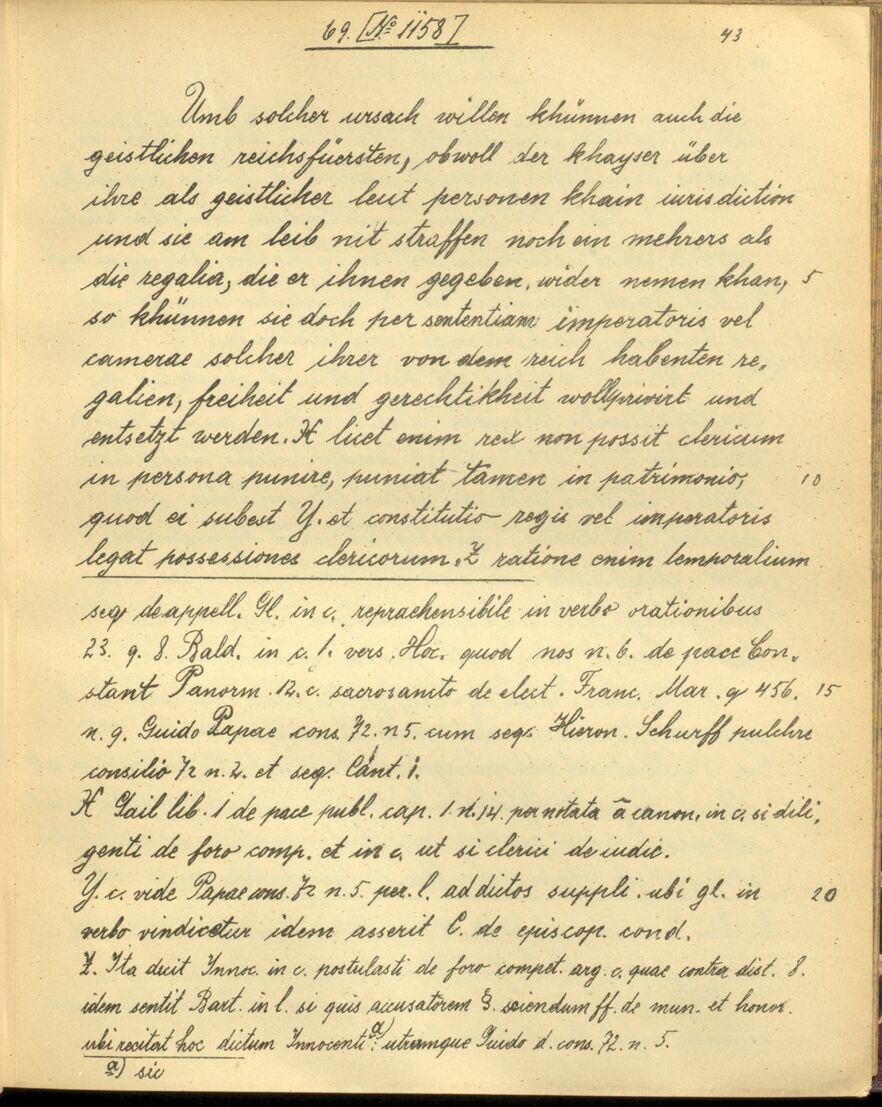 69. [No 1158]
43
Umb solcher ursach willen khünnen auch die
geistlichen reichsfüersten, obwoll der khayser über
ihre als geistlicher leut personen khain iurisdiction
und sie am leib nit straffen noch ein mehrers als
die regalia, die er ihnen gegeben, wider nemen khan, 5
so khünnen sie doch per sententiam imperatoris vel
camerae solcher ihrer von dem reich habenten re„
galien, freiheit und gerechtikheit woll privirt und
entsetzt werden. X licet enim rex non possit clericum
in persona punire, puniat tamen in patrimonio, 10
quod ei subest Y. et constitutio regis vel imperatoris
legat possessiones clericorum. Z ratione enim temporalium
seq de appell. Gl. in c. reprachensibile in verbo orationibus
23. q. 8. Bald. in c. 1. vers. Hoc. quod nos n. 6. de pace Con„
stant Panorm. 12. c. sacrosancto de elect. Franc. Mar. q 456. 15
n. 9. Guido Papae cons. 72. n 5. cum seq. Hieron. Schurff pulchre
consilio 72 n. 2. et seq. Cant. 1.
X Gail lib. 1 de pace publ. cap. 1. n. 14. per notata a canon. in c. si dili„
genti de foro comp. et in c. ut si clerici de iudic.
Y. c. vide Papae cons. 72 n. 5. per. l. addictos suppli. ubi gl. in 20
verbo vindicetur idem asserit C. de episcop. cond.
Z. Ita dicit Innoc. in c. postulasti de foro compet. arg. c. quae contra dist. 8.
idem sentit Bart. in l. si quis accusatorem §. sciendum ff. de mun. et honor.
ubi recitat hoc dictum Innocenti a) : utramque Guido d. cons. 72. n. 5.
a) sic